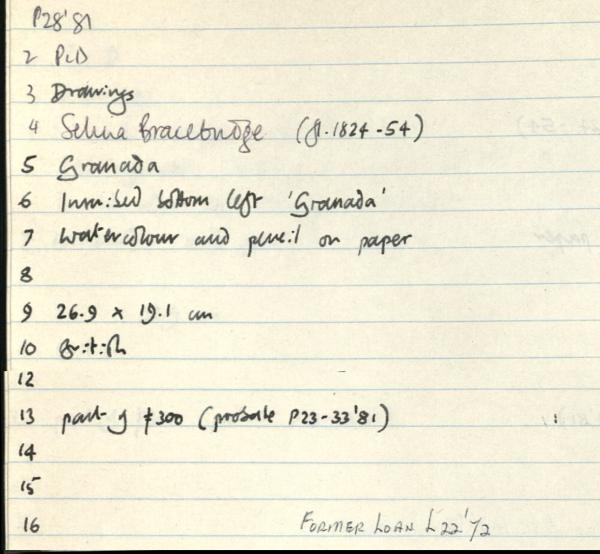 P28'81
2 P&D
3 Drawings
4 Selina Bracebridge (fl. 1824-54)
5 Granada
6 Inscribed bottom left 'Granada'
7 Watercolour and pencil on paper
8
9 26.9 x 19.1 cm
10 British
12
13 part of £300 (probate P23-33'81)
14
15
16 FORMER LOAN L22'72